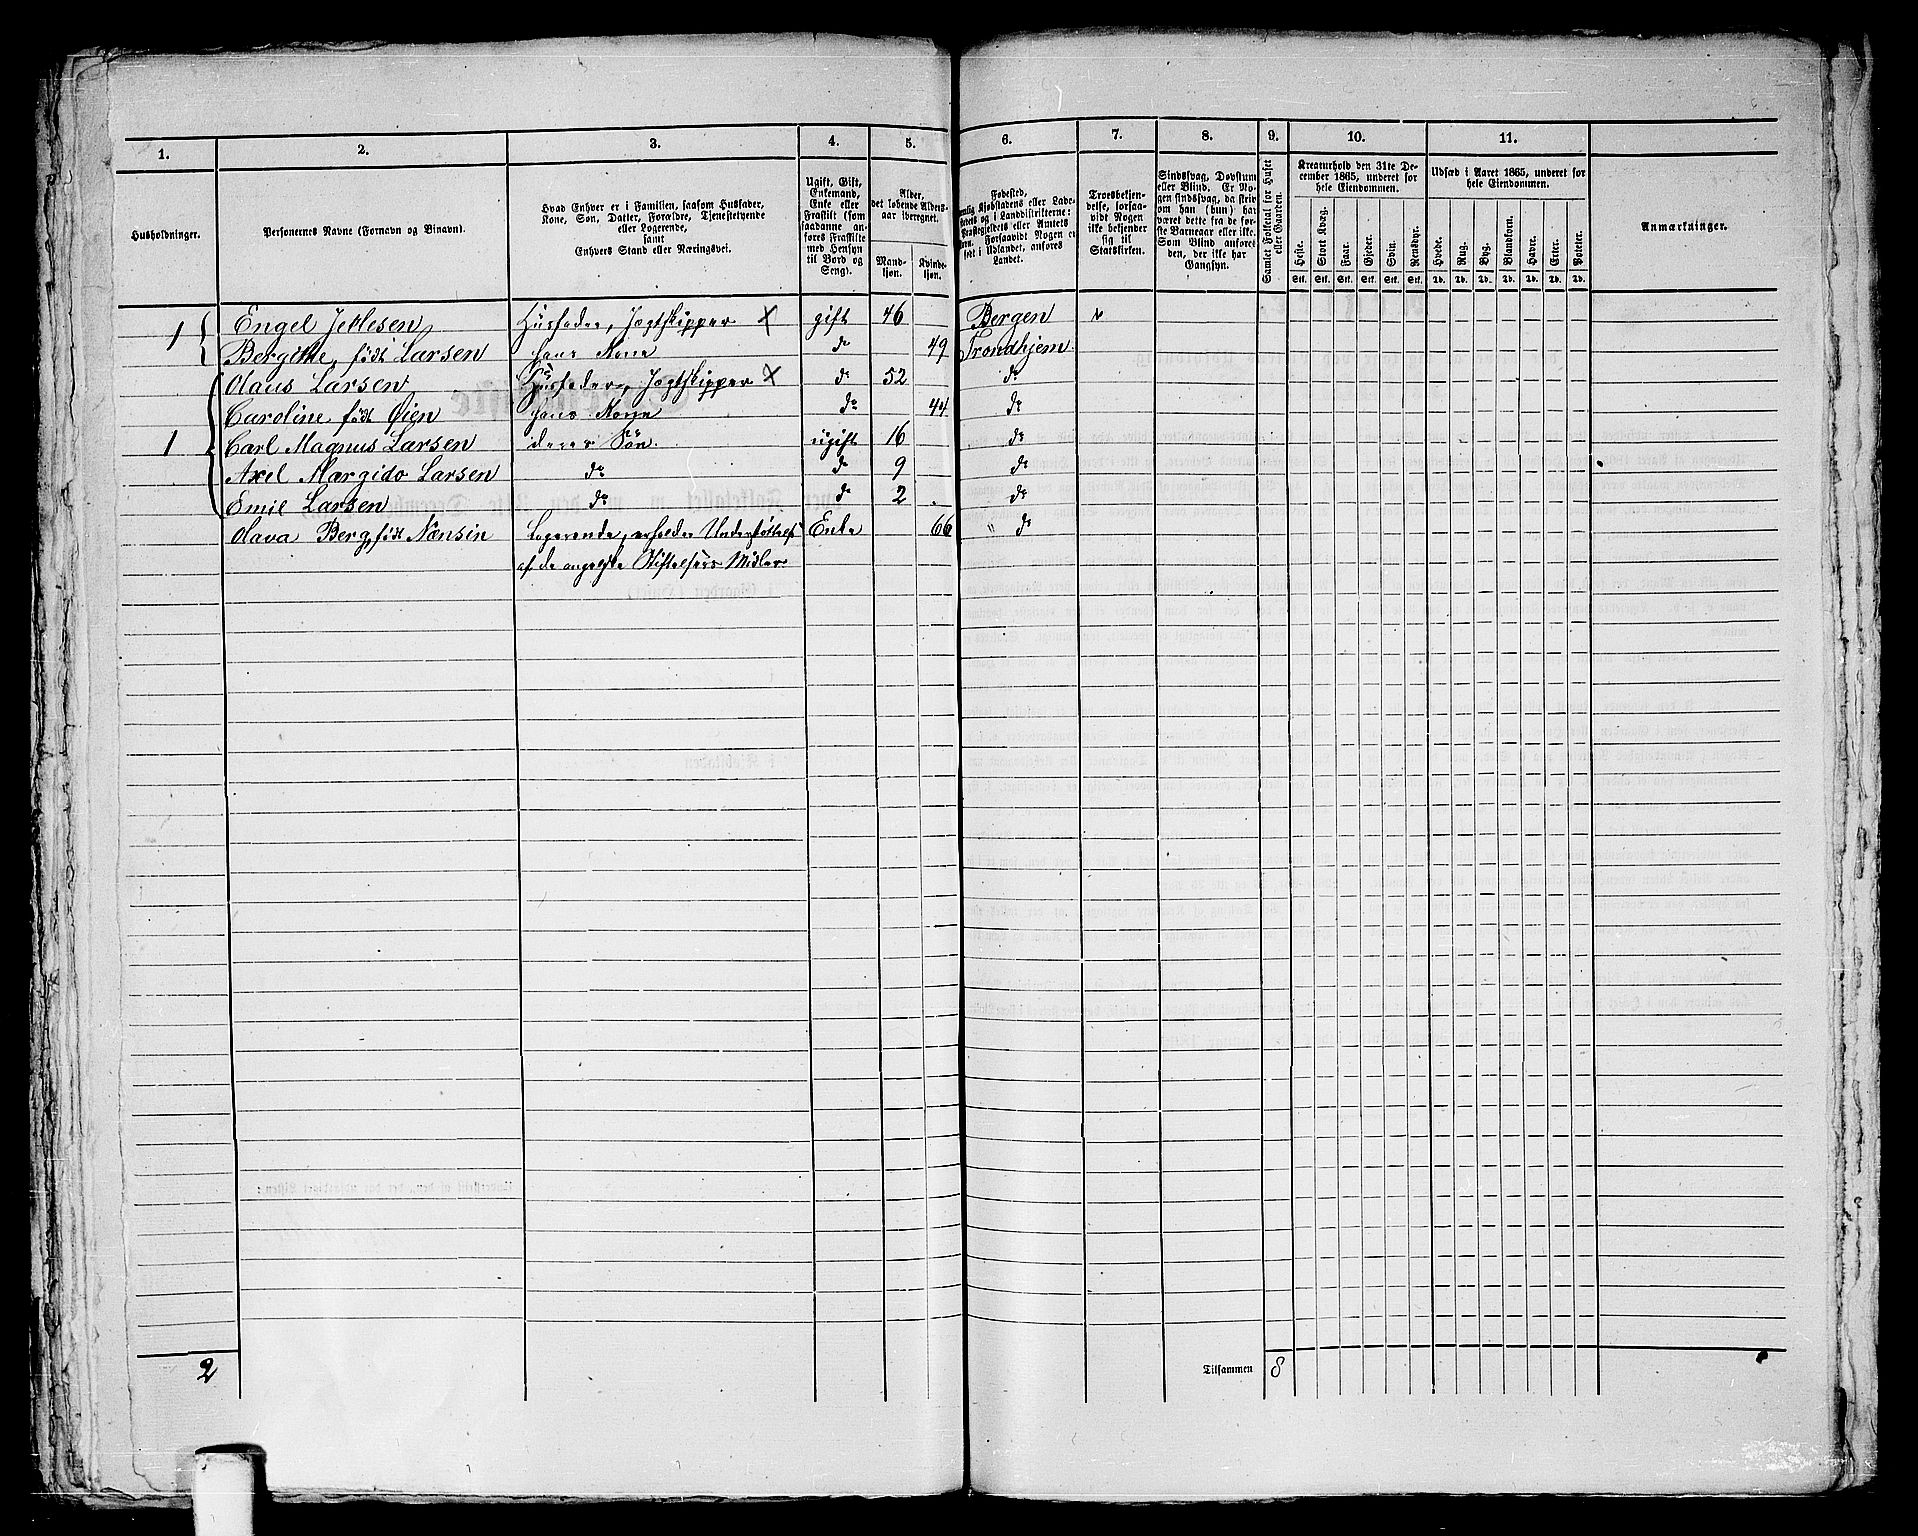 1. 2. 3. 4. 5. 6. 7. 8. 9. 10. 11.
Husholdninger.
Personernes Navne (Fornavn og Binavn).
Hvad Enhver er i Familien, saasom Husfader,
Kone, Søn, Datter, Forældre, Tjenestetyende
eller Logerende,
samt
Enhvers Stand eller Næringsvei.
Ugift, Gift,
Enkemand,
Enke eller
Fraskilt (som
saadanne an-
føres Fraskilte
med Hensyn
til Bord og
Seng).
Alder,
det løbende Alders-
aar iberegnet.
Mand-
kjøn.
Kvinde-
kjøn.
Fødested,
Troesbekjen-
delse, forsaa-
vidt Nogen
ikke bekjender
sig til
Statskirken.
Sindssvag, Døvstum
eller Blind. Er No-
gen sindssvag, da skriv
om han (hun) har
været dette fra de før-
ste Barneaar eller ikke.
Som Blind anføres
den, der ikke har
Gangsyn.
Samlet Folketal for Huset
eller Gaarden.
Kreaturhold den 31te De-
cember 1865, underet for
hele Eiendommen.
Heste. Stort Kvæg. Faar. Gjeder. Svin. Rensdyr.
Stk. Stk. Stk. Stk. Stk. Stk.
Udsæd i Aaret 1865, underet for
hele Eiendommen.
Hvede. Rug. Byg. Blandkorn. Havre. Erter. Poteter.
Td. Td. Td. Td. Td. Td. Td.
Anmærkninger.
1 Engel Jellesen Husfader, Jagtskipper X gift 46 Bergen
Bergitte, født Larsen hans Kone do 49 Trondhjem
Olaus Larsen Husfader, Jagtskipper X do 52 do
Caroline født Øien hans Kone do 44 do
1 Carl Magnus Larsen deres Søn. ugift 16 do
Axel Margido Larsen do do 9 do
Emil Larsen do do 2 do
Olava Berg, født Nensin Logerende, erholder Understøttelse Enke 66 " do
af de angelske Stiftelsers Midler
2 Tilsammen 8